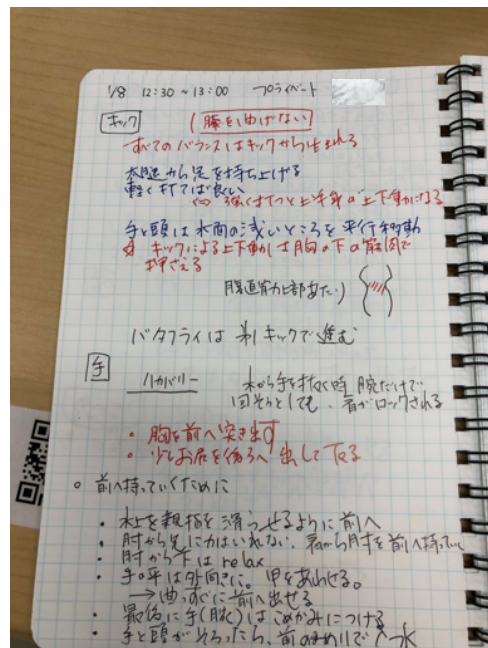 1/8 12:30 ~ 13:00 プライベート
キック (腰を曲げない)
すべてのバランスはキックから生まれる
太腿から足を持ち上げる
軽く打てば良い
⇔ 強く打つと上半身が上下動になる
手と頭は水面の浅いところを平行移動
☆ キックによる上下動は胸の下の筋肉で
押さえる
腹直筋上部あたり
バタフライは第1キックで進む
手
リカバリー 水から手を抜く時、腕だけで
回そうとしても、肩がロックされる
・胸を前へ突き出す
・少しお尻を後ろへ出して
○ 前へ持っていくために
・水上を親指を滑らせるように前へ
・肘から先に力はいれない、肩から肘を前へ持っていく
・肘から下は relax
・手の平は外向きに。甲をあわせる。
→ まっすぐに前へ出せる
・最後に手(腕)はこめかみにつける
・手と頭がそろったら、前のめりで 水